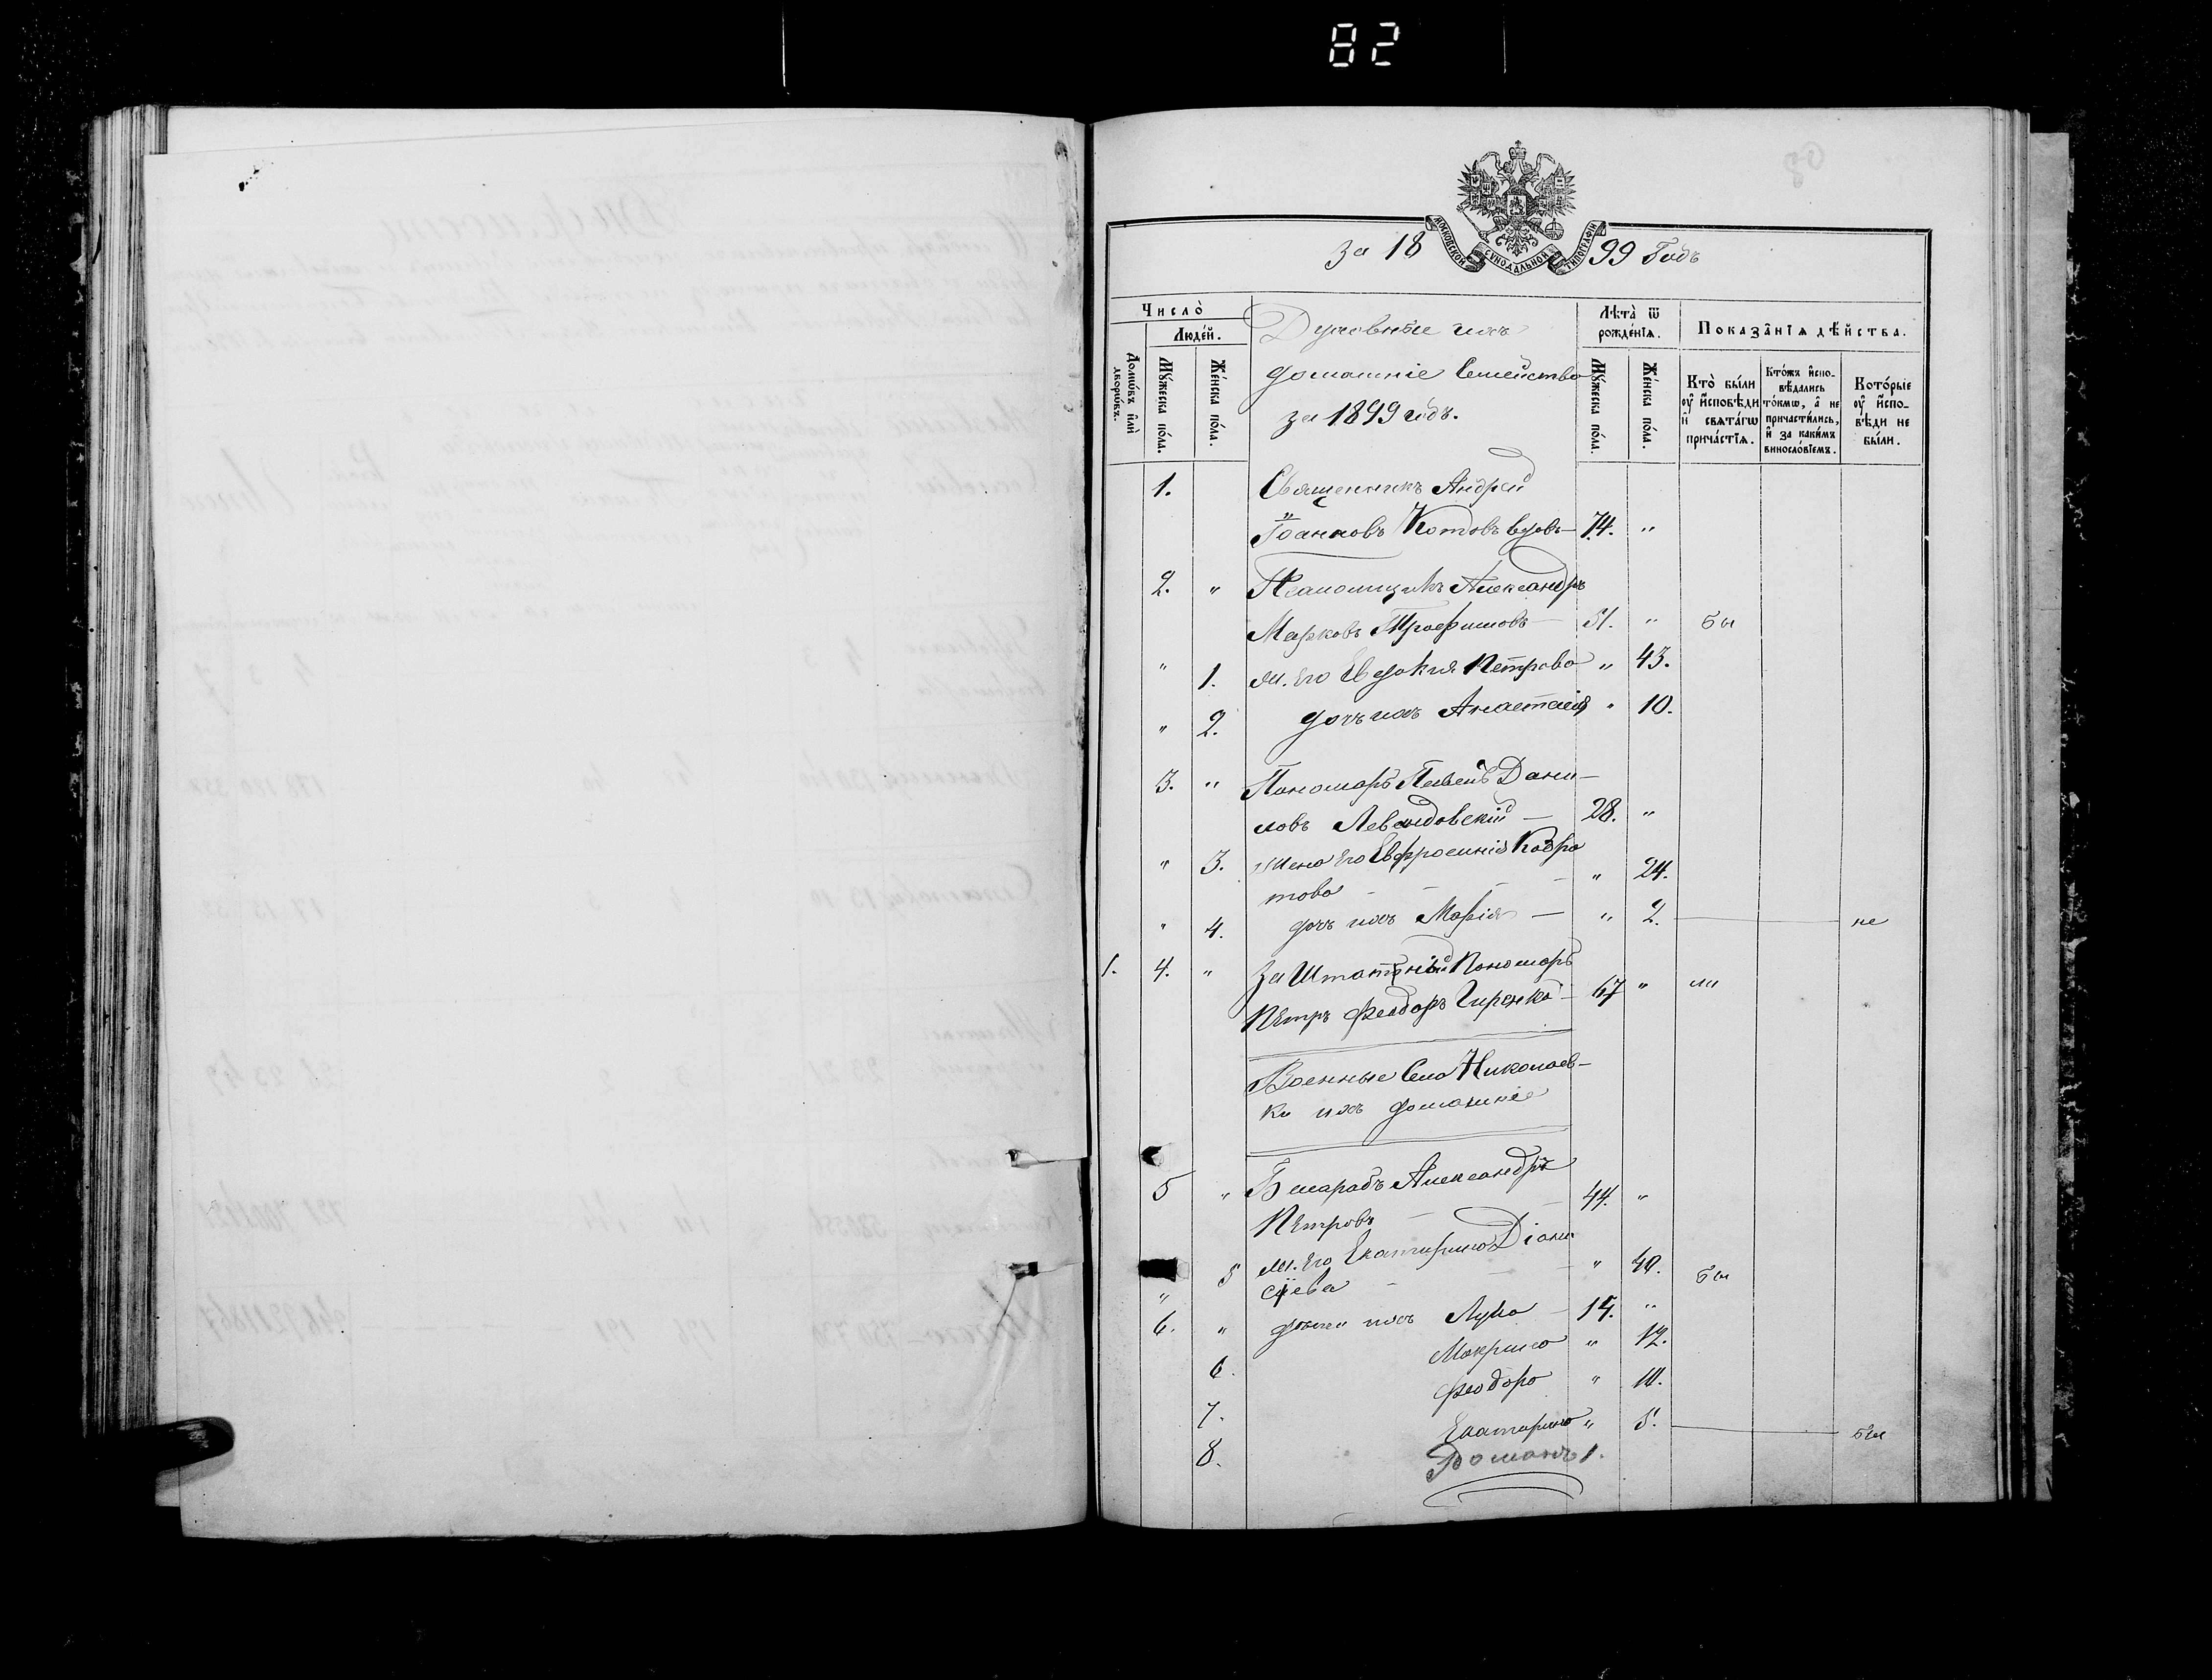 82
МОСКОВСКОЙ СѴНОДАЛЬНОЙ ТИПОГРАФІИ
за 18 99 Годъ
Число̀
Люде́й.
Домѡ́въ и҆лѝ дворѡ́въ.
Мꙋ́жеска по́ла.
Же́нска по́ла.
Духовные ихъ
домашніе Семейство
за 1899 годъ.
Лѣта̀ ѿ рожде́нїѧ.
Мꙋ́жеска по́ла.
Же́нска по́ла.
Показа̑нїѧ дѣ́йства.
Кто̀ бы́ли оу҆ и҆сповѣ́ди и҆ свѧта́гѡ прича́стїѧ.
Кто́жъ и҆сповѣ́дались то́кмѡ, а҆ не причасти́лись, и҆ за каки́мъ винослові́емъ.
Кото́рые оу҆ и҆сповѣ́ди не бы́ли.
1. Священникъ Андрей
Іоанновъ Котовъ вдовъ — 74. "
2. " Псаломщикъ Александръ
Марковъ Трофимовъ — 51. " бы
" 1. ж. Его Евдокия Петрова " 43.
" 2. дочъ ихъ Анастасія " 10.
3. " Пономаръ Дани-
ловъ Левандовскій — 28. "
" 3. жена Его Евфросинія Кодра
това — " 24.
" 4. дочъ ихъ Марія — " 2. — не
1. 4. " За Штатный Пономаръ
Петръ Феодоръ Гиренко — 67 " ли
Военные Села Николаев-
ки ихъ домашніе
5 " Александръ
Петровъ — 44. "
" 5 ж. Его Екатерина Діони
сіева — " 40. бы
6. " дѣти ихъ Лука — 15. "
6. Макрина " 12.
7. Феодора " 10.
8. Екатерина " 5. — бы
Романъ 1.